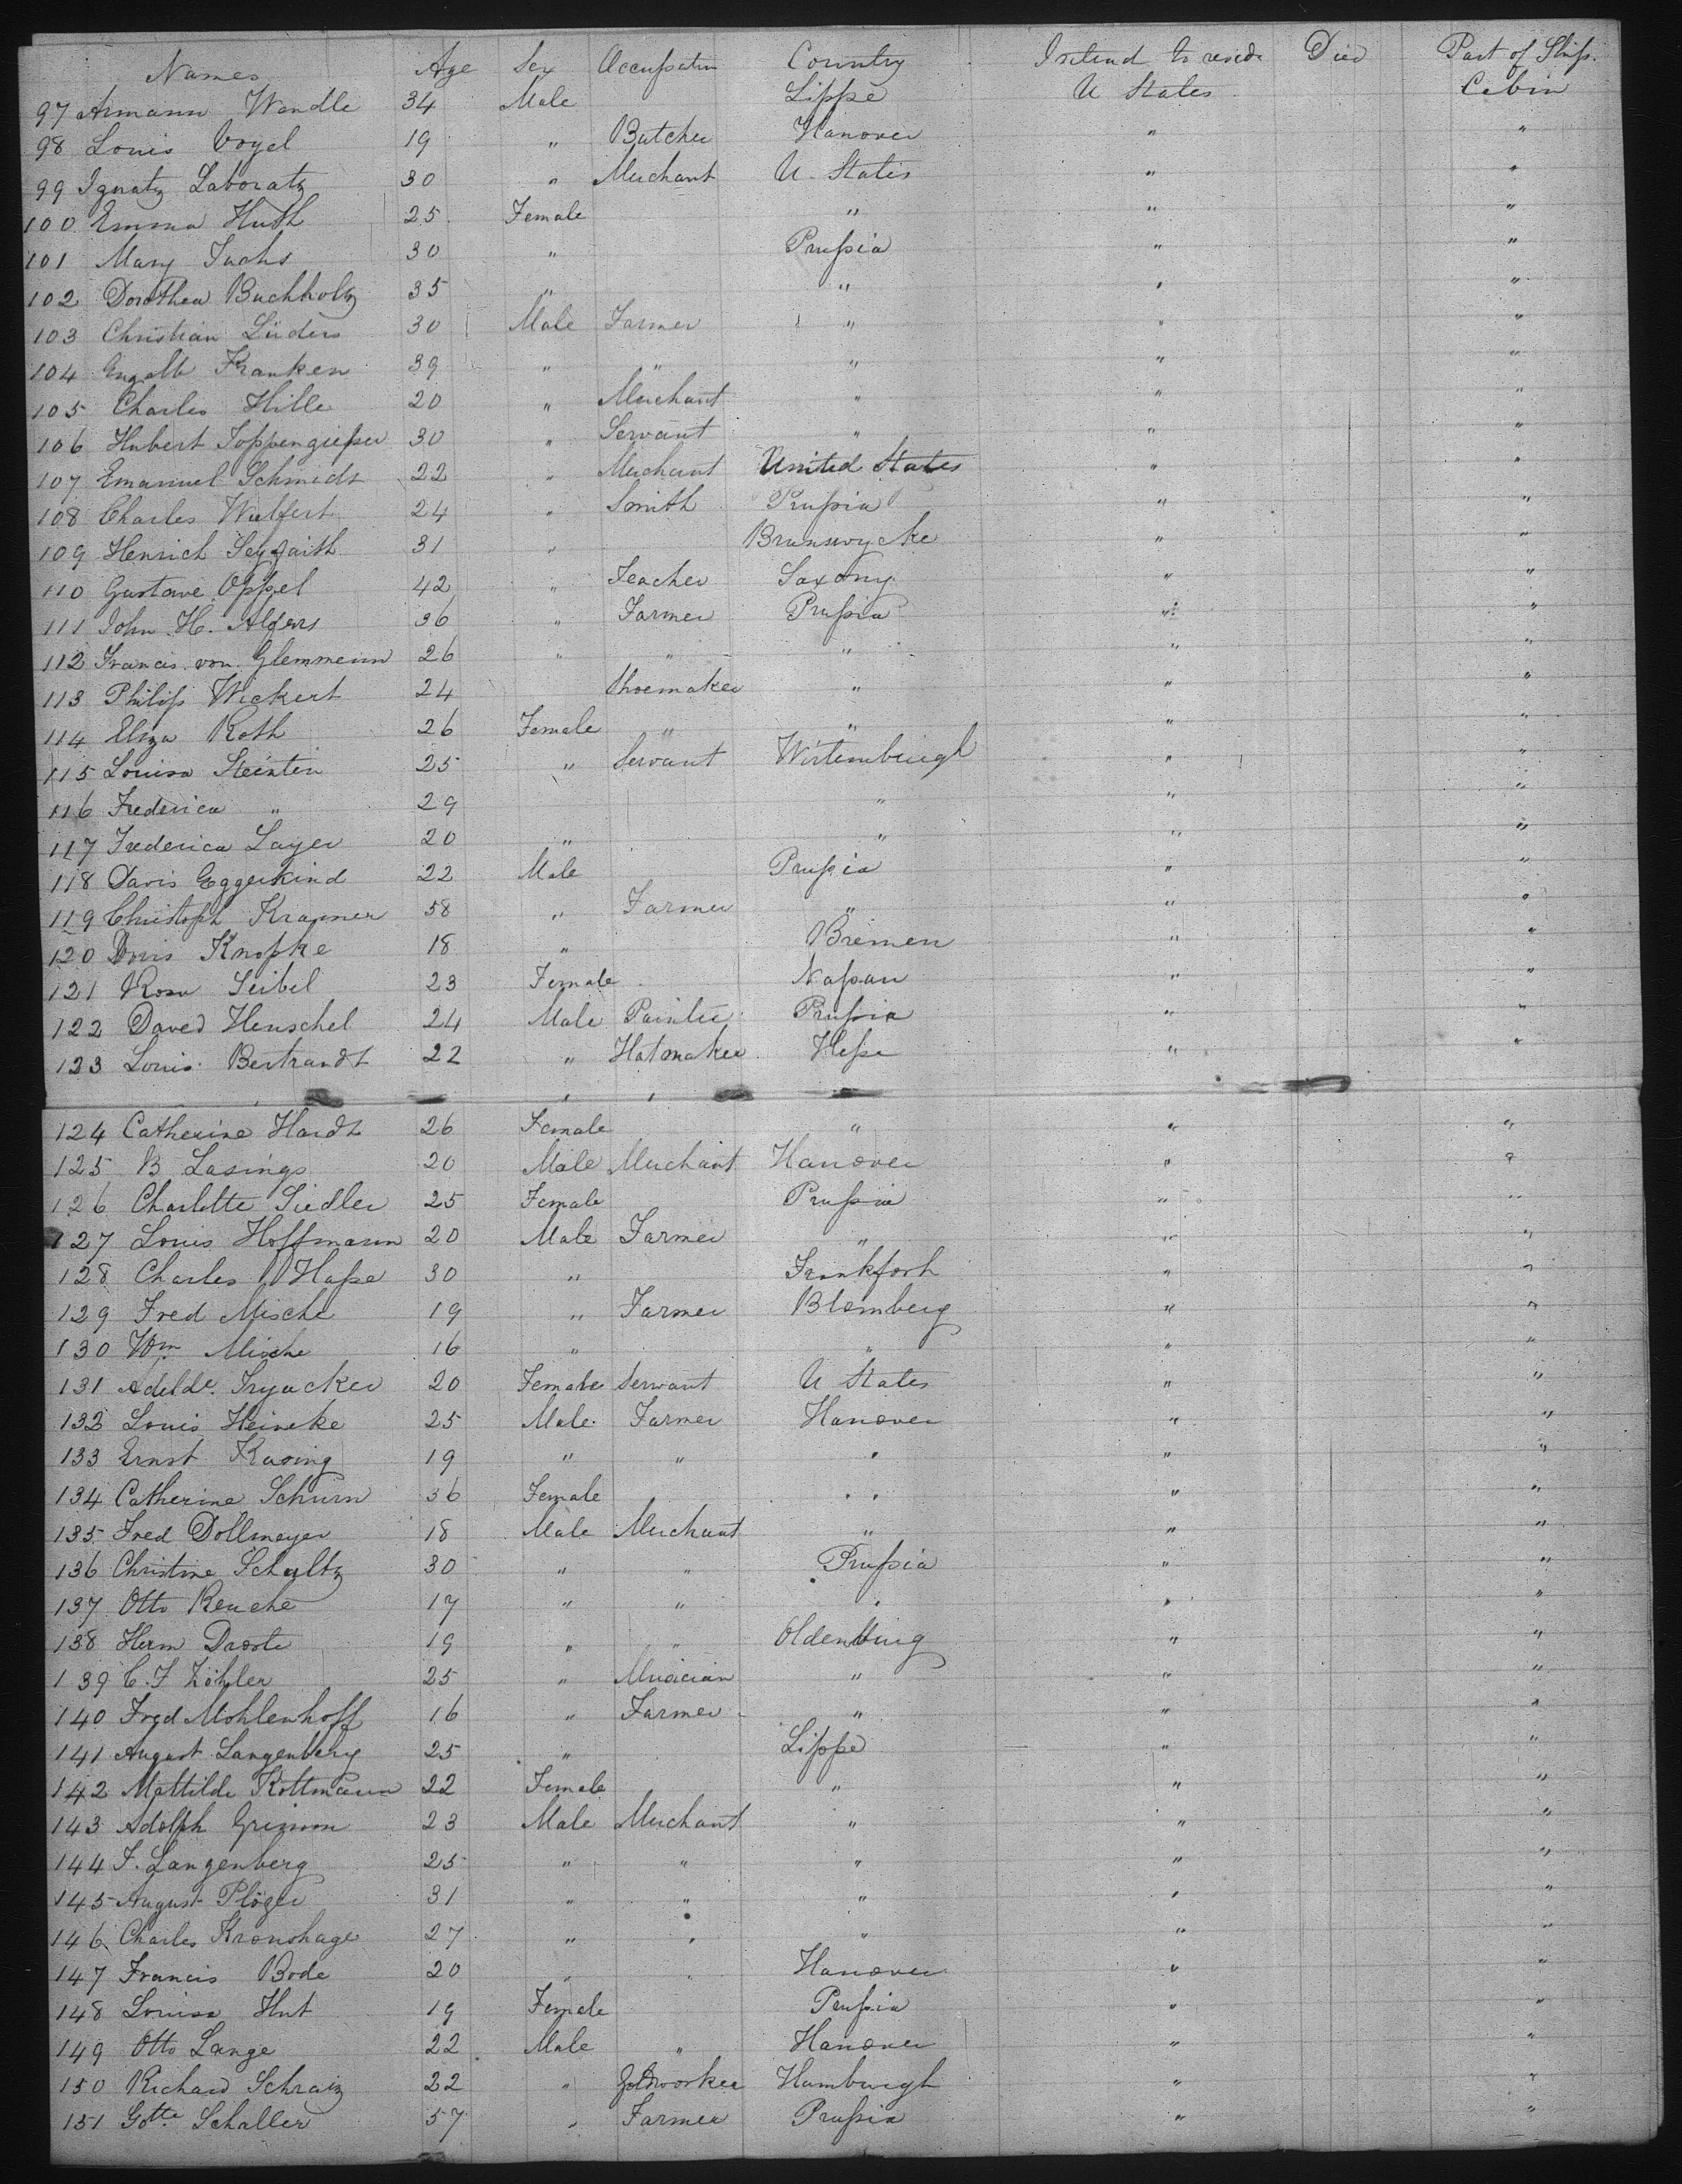 Names Age Sex Occupation Country Intend to reside Died Part of Ship.
97 Armann Wandle 34 Male Lippe U States Cabin
98 Louis Vogel 19 " Butcher Hanover " "
99 Ignatz Laboratz 30 " Merchant U. States " "
100 Emma Huth 25 Female " " "
101 Mary Fuchs 30 " Prussia " "
102 Dorothea Buchholtz 35 " " " "
103 Christian Lüders 30 Male Farmer " " "
104 Engelb Franken 39 " " " " "
105 Charles Hille 20 " Merchant " " "
106 Hubert Toppengiesser 30 " Servant " " "
107 Emanuel Schmidt 22 " Merchant United States " "
108 Charles Wulfert 24 " Smith Prussia " "
109 Henrich Seyfaith 31 " Brunswycke " "
110 Gustave Oppel 42 " Teacher Saxony " "
111 John H. Algers 36 " Farmer Prussia " "
112 Francis von Glemmenn 26 " " " " "
113 Philip Wickert 24 Shoemaker " " "
114 Eliza Roth 26 Female " " " "
115 Louisa Steintin 25 " Servant Wirtemburgh " "
116 Frederica " 29 " " "
117 Frederica Layer 20 " " " "
118 Davis Eggerkind 22 Male Prussia " "
119 Christoph Kramer 58 " Farmer " " "
120 Doris Knopke 18 " Bremen " "
121 Rosa Seibel 23 Female Nassau " "
122 Daved Henschel 24 Male Painter Prussia " "
123 Louis Bertrandt 22 " Hatmaker Hesse " "
124 Catherine Hardt 26 Female " " "
125 B Lasings 20 Male Merchant Hanover " "
126 Charlotte Siedler 25 Female Prussia " "
127 Louis Hoffmann 20 Male Farmer " " "
128 Charles Hasse 30 " Frankforh " "
129 Fred Mische 19 " Farmer Blomberg " "
130 Wm Mische 16 " " " "
131 Adelde. Tryacker 20 Female Servant U States " "
132 Louis Heineke 25 Male Farmer Hanover " "
133 Ernst Kasing 19 " " " " "
134 Catherine Schurn 36 Female " " "
135 Fred Dollmeyer 18 Male Merchant " " "
136 Christine Schultz 30 " " Prussia " "
137 Otto Reuche 17 " " " " "
138 Herm Droste 19 " " Oldenburg " "
139 C. F Zöhler 25 " Musician " " "
140 Fred Mohlenhoff 16 " Farmer " " "
141 August Langenberg 25 " Lippe " "
142 Mattilde Kottmann 22 Female " " "
143 Adolph Grimm 23 Male Merchant " " "
144 F. Langenberg 25 " " " " "
145 August Plöger 31 " " " " "
146 Charles Kronshage 27 " " " " "
147 Francis Bode 20 " " Hanover " "
148 Louisa Hut 19 Female Prussia " "
149 Otto Lange 22 Male " Hanover " "
150 Richard Schraiz 22 " Goldworker Hamburgh " "
151 Gotte Schaller 57 " Farmer Prussia " "